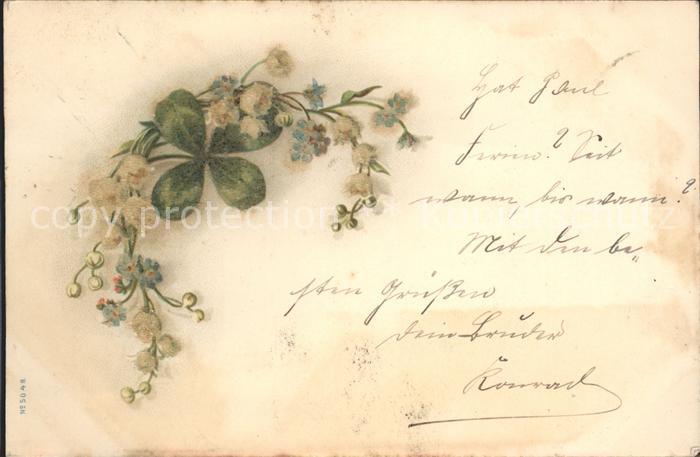 Hat Paul
Ferien? Seit
wann, bis wann?
Mit den be„
sten Grüßen
dein Bruder
Konrad
No 5048
copy protection Kopierschutz